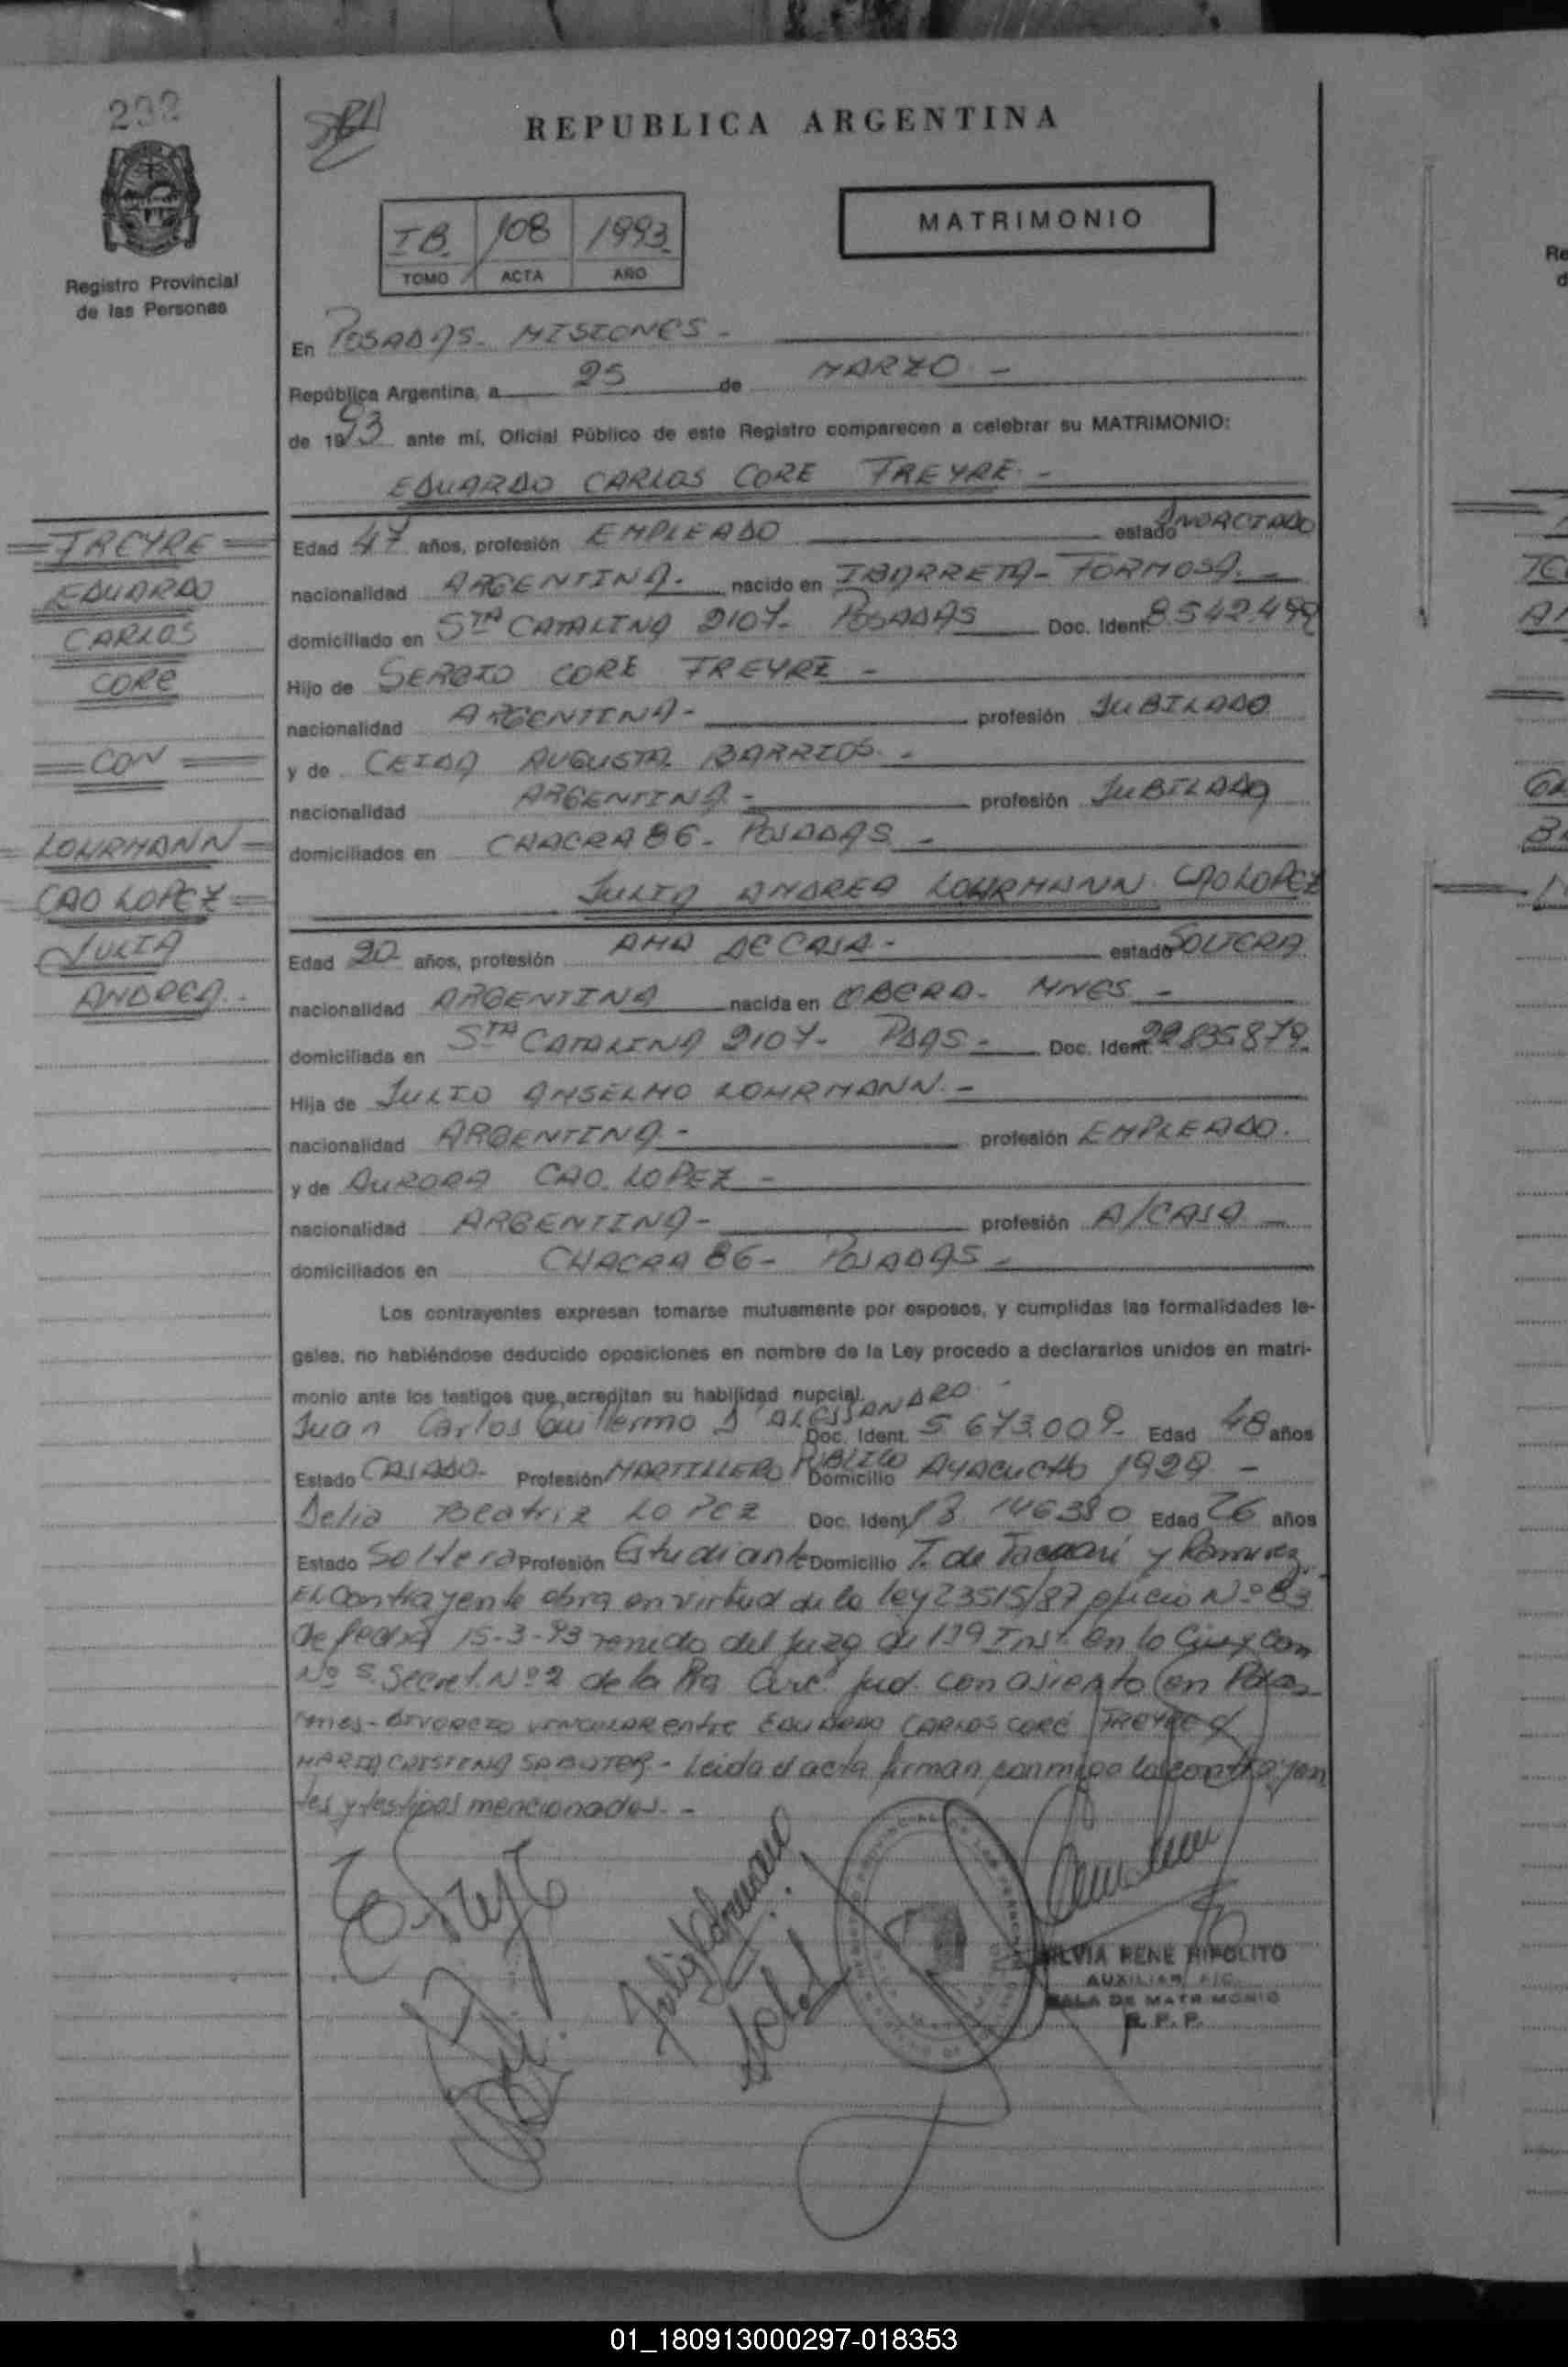 232
REPUBLICA ARGENTINA
Registro Provincial
de las Personas
I B. 108 1993
TOMO ACTA AÑO
MATRIMONIO
En POSADAS - MISIONES -
República Argentina, a 25 de MARZO -
de 1993 ante mí, Oficial Público de este Registro comparecen a celebrar su MATRIMONIO:
EDUARDO CARLOS CORE FREYRE -
FREYRE
EDUARDO
CARLOS
CORE
CON
LOHRMANN
CAO LOPEZ
JULIA
ANDREA.-
Edad 47 años, profesión EMPLEADO estado DIVORCIADO
nacionalidad ARGENTINA. nacido en IBARRETA - FORMOSA. -
domiciliado en STA CATALINA 2107 - POSADAS Doc. Ident. 8.542.499
Hijo de SERGIO CORE FREYRE -
nacionalidad ARGENTINA - profesión JUBILADO
y de CEIDA AUGUSTA BARRIOS. -
nacionalidad ARGENTINA - profesión JUBILADA
domiciliados en CHACRA 86 - POSADAS -
JULIA ANDREA LOHRMANN CAO LOPEZ
Edad 20 años, profesión AMA DE CASA - estado SOLTERA
nacionalidad ARGENTINA nacida en OBERA - MNES -
domiciliada en STA CATALINA 2107 - PDAS - Doc. Ident. 22835879.
Hija de JULIO ANSELMO LOHRMANN. -
nacionalidad ARGENTINA - profesión EMPLEADO.
y de AURORA CAO LOPEZ -
nacionalidad ARGENTINA - profesión A/CASA
domiciliados en CHACRA 86 - POSADAS -
Los contrayentes expresan tomarse mutuamente por esposos, y cumplidas las formalidades le-
gales, no habiéndose deducido oposiciones en nombre de la Ley procedo a declararlos unidos en matri-
monio ante los testigos que acreditan su habilidad nupcial.
Juan Carlos Guillermo D'ALESSANDRO Doc. Ident. 5 673.009 - Edad 48 años
Estado CASADO - Profesión MARTILLERO PUBLICO Domicilio AYACUCHO 1929 -
Delia Beatriz LOPEZ Doc. Ident. 18 146380 Edad 26 años
Estado Soltera Profesión Estudiante Domicilio T. de Tacuarí y Ramirez
El contrayente obra en virtud de la ley 23515/87 oficio Nº 83
de fecha 15-3-93 remido del Juzg de 1ra Inst. en lo Civ y Com
Nº 5 Secret. Nº 2 de la Pra Circ. Jud. con asiento en Pdas
mnes - DIVORCIO VINCULAR entre EDUARDO CARLOS CORÉ FREYRE y
MARIA CRISTINA SABOTER - Leida el acta firman conmigo los contrayen
tes y testigos mencionados. -
SILVIA RENE HIPOLITO
AUXILIAR
SALA DE MATRIMONIO
R. P. P.
01_180913000297-018353